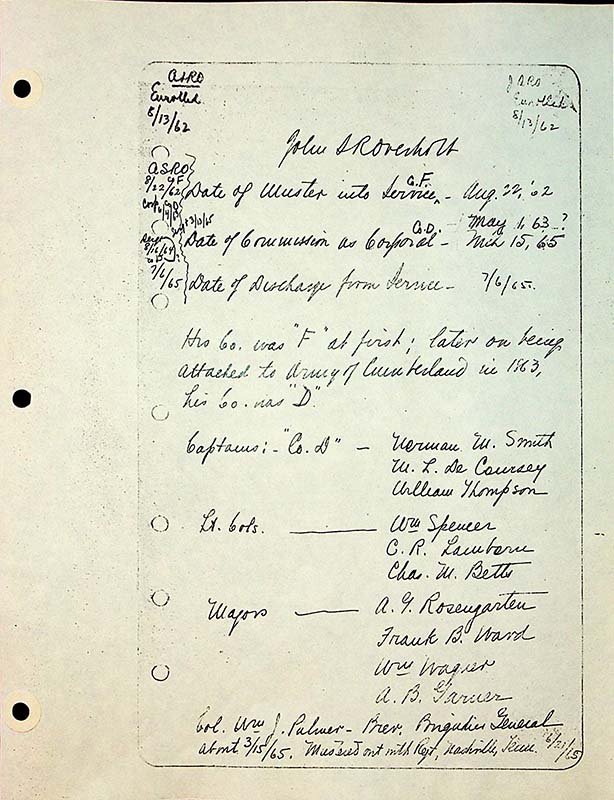 ASRO
Enrolled
8/13/62
Enrolled
8/13/62
John S R Overholt
ASRO
8/22/62
C.F.
Date of Muster into Service - Aug. 22, '62
Co. D - May 1, 63 - ?
Date of Commission as Corporal - Mch 15, 65
7/6/65
Date of Discharge from Service - 7/6/65.
His Co. was "F" at first; later on being
attached to Army of Cumberland in 1863,
his Co. was "D".
Captains: - "Co. D" - Norman M. Smith
M. L. De Coursey
William Thompson
Lt. Cols. Wm Spencer
C. R. Lamborn
Chas. M. Betts
Majors A. G. Rosengarten
Frank B. Ward
Wm Wagner
A. B. Garner
Col. Wm J. Palmer - Brev. Brigadier General
about 3/15/65. Mustered out with Regt, Nashville, Tenn. 6/21/65